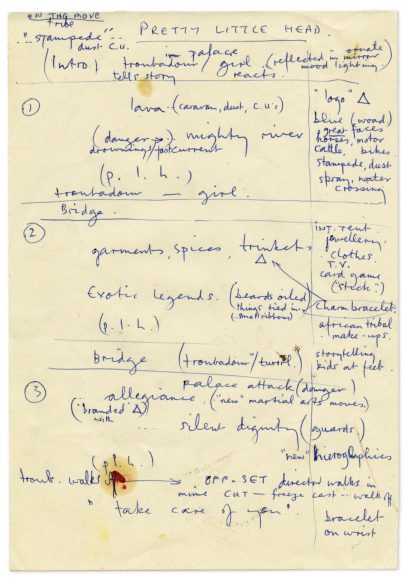 ON THE MOVE
tribe
"stampede"..
dust c.u.
PRETTY LITTLE HEAD.
(Intro) troubadour in palace / girl (reflected in ornate mirror
tells story reacts. mood lighting.
①
lava (caravan, dust, c.u's)
(danger) mighty river
drownings/fast current
(p. l. h.)
troubadour — girl.
"logo" △
blue (woad)
great faces
horses, motor
cattle, bikes
stampede, dust
spray, water
crossing
Bridge.
②
garments, spices, trinkets
△
Exotic legends. (beards oiled
things tied in
(small ribbons)
(p. l. h.)
INT. tent
jewellery.
clothes.
T.V.
card game
("stack")
charm bracelet.
african tribal
make-ups.
storytelling
kids at feet.
Bridge (troubadour/twirl.
③
palace attack (danger)
allegiance. ("new" martial arts moves)
("branded" △)
with
... silent dignity (guards)
"new" hieroglyphics
(p. l. h.)
troub.. walks off → OFF-SET director walks in
mime CUT — freeze cast — walk off
"take care of you"
bracelet
on wrist